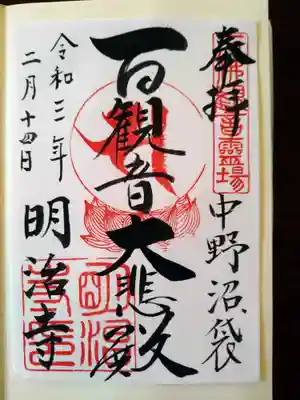 奉拝
中野沼袋
百観音大悲殿
令和三年
二月十四日
明治寺
明治寺印